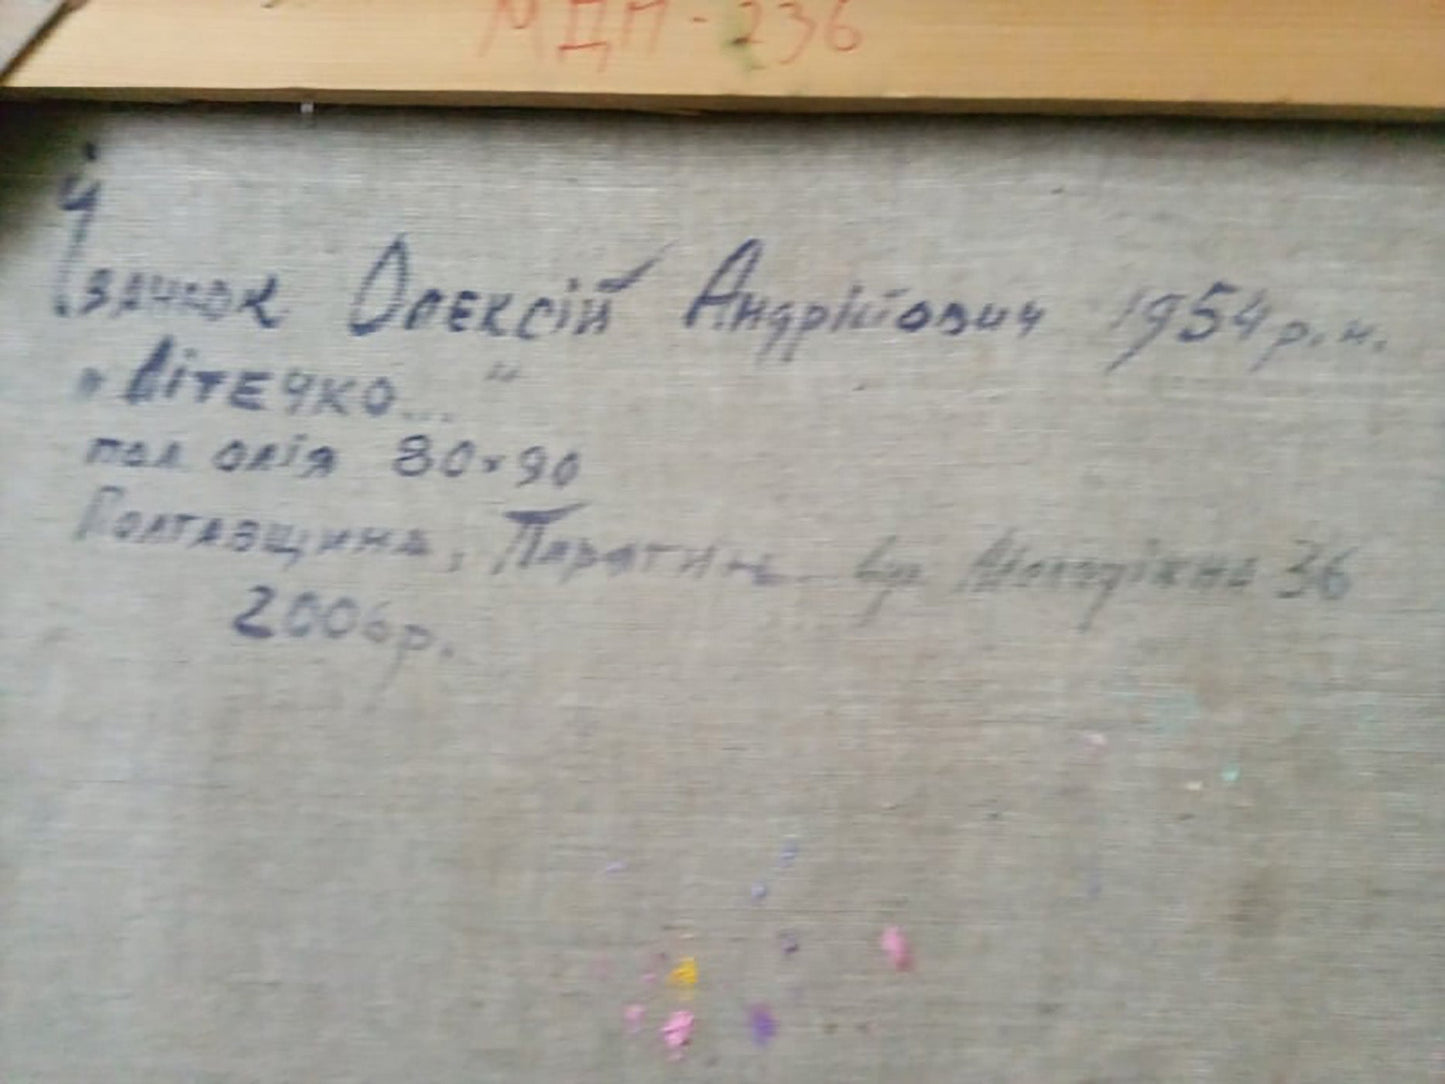 МДМ-236
Олексій Андрійович 1954 р.н.
„Вітечко..."
пол олія 80×90
Полтавщина, Пирятин. вул Молодіжна 36
2006р.